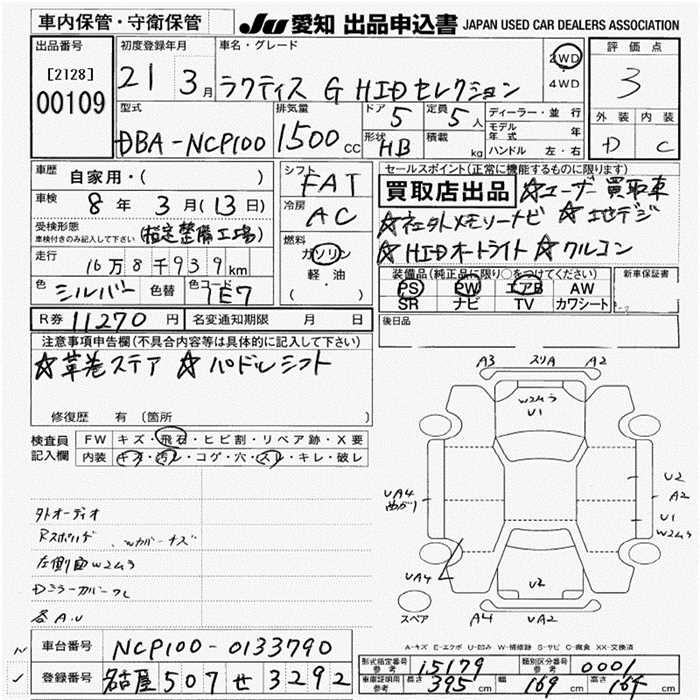 車内保管・守衛保管
JU 愛知 出品申込書 JAPAN USED CAR DEALERS ASSOCIATION
出品番号
[2128]
00109
初度登録年月
21 3月
車名・グレード
ラクティス G HIDセレクション
2WD
・
4WD
評価点
3
外装 内装
D C
型式
DBA-NCP100
排気量
1500 cc
ドア 5
定員 5人
形状 HB
積載 kg
ディーラー・並行
モデル年式 年
ハンドル 左・右
車歴 自家用・( )
車検 8年 3月(13日)
受検形態
車検付きのみ記入して下さい (指定整備工場)
走行 16万8千939km
色 シルバー 色替 色コード 1E7
シフト FAT
冷房 AC
燃料
ガソリン
軽油
(・ )
セールスポイント(正常に機能するものに限ります)
買取店出品 ☆ユーザー買取車
☆社外メモリーナビ ☆地デジ
☆HIDオートライト ☆クルコン
装備品(純正品に限り○をつけてください)
PS PW エアB AW
SR ナビ TV カワシート
新車保証書
後日品
R券 11270円 名変通知期限 月 日
注意事項申告欄(不具合内容等は具体的に記入して下さい)
☆革巻ステア ☆パドルシフト
修復歴 有 (箇所 )
検査員記入欄
FW キズ・飛石・ヒビ割・リペア跡・X要
内装 キズ・汚レ・コゲ・穴・スレ・キレ・破レ
外オーディオ
左側面W2ムラ
Dミラーカバーワレ
各A.U
A3 スリA A2
W2ムラ
U1
UA4
曲がり
U2
A
U1
W2ムラ
UA4
U2
スペア
A4 UA2
A-キズ E-エクボ U-凹み W-補修跡 S-サビ C-腐食 XX-交換済
車台番号 NCP100-0133790
登録番号 名古屋 507 せ 3292
形式指定番号
参考 15179
類別区分番号
参考 0001
車庫証明用
参考 長さ 395cm 幅 169cm 高さ 164cm